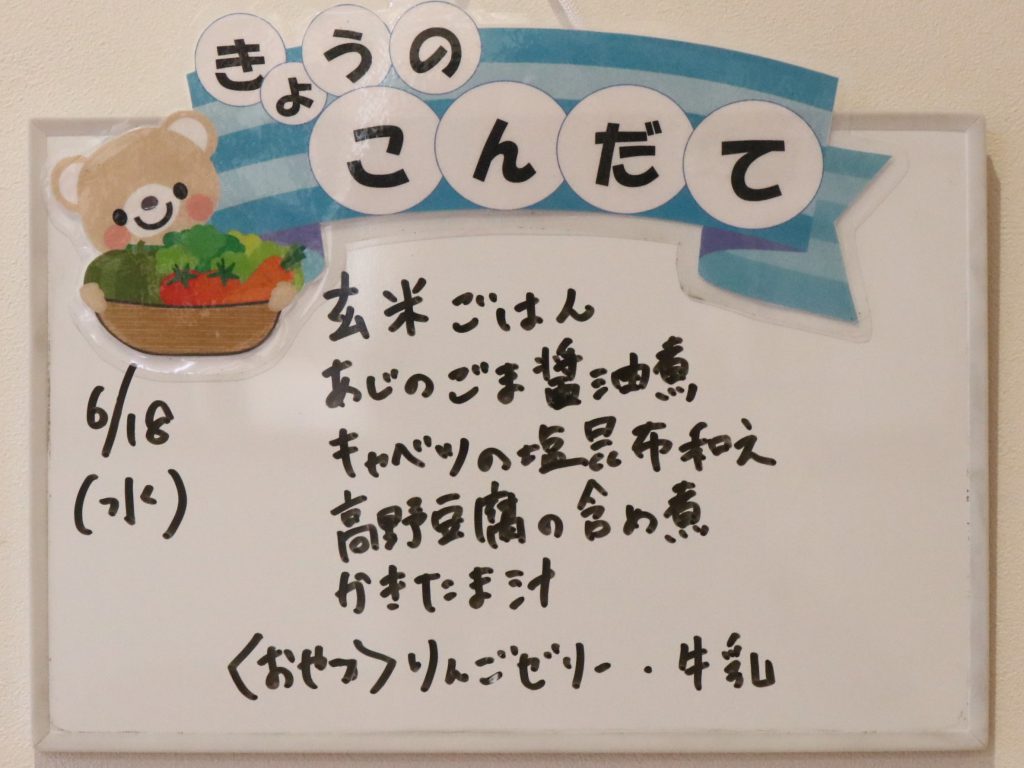 きょうの
こんだて
6/18
(水)
玄米ごはん
あじのごま醤油煮
キャベツの塩昆布和え
高野豆腐の含め煮
かきたま汁
〈おやつ〉りんごゼリー・牛乳